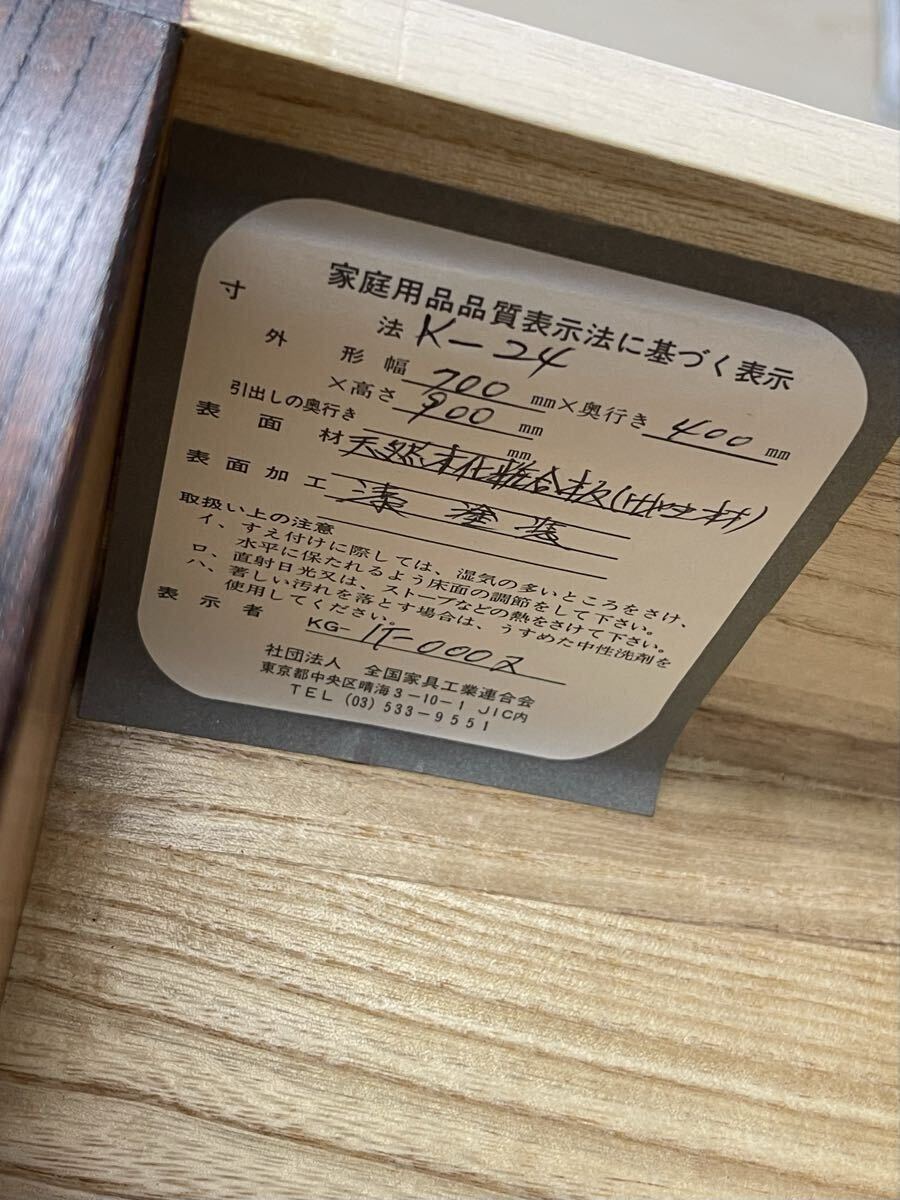 家庭用品品質表示法に基づく表示
寸法 K-24
外形 幅 700 mm×奥行き 400 mm
×高さ 900 mm
引出しの奥行き mm
表面材 天然木化粧合板(けやき材)
表面加工 漆塗装
取扱い上の注意
イ、すえ付けに際しては、湿気の多いところをさけ、
水平に保たれるよう床面の調節をして下さい。
ロ、直射日光又は、ストーブなどの熱をさけて下さい。
ハ、著しい汚れを落とす場合は、うすめた中性洗剤を
使用してください。
表示者 KG-IT-0002
社団法人 全国家具工業連合会
東京都中央区晴海3-10-1 JIC内
TEL (03) 533-9551